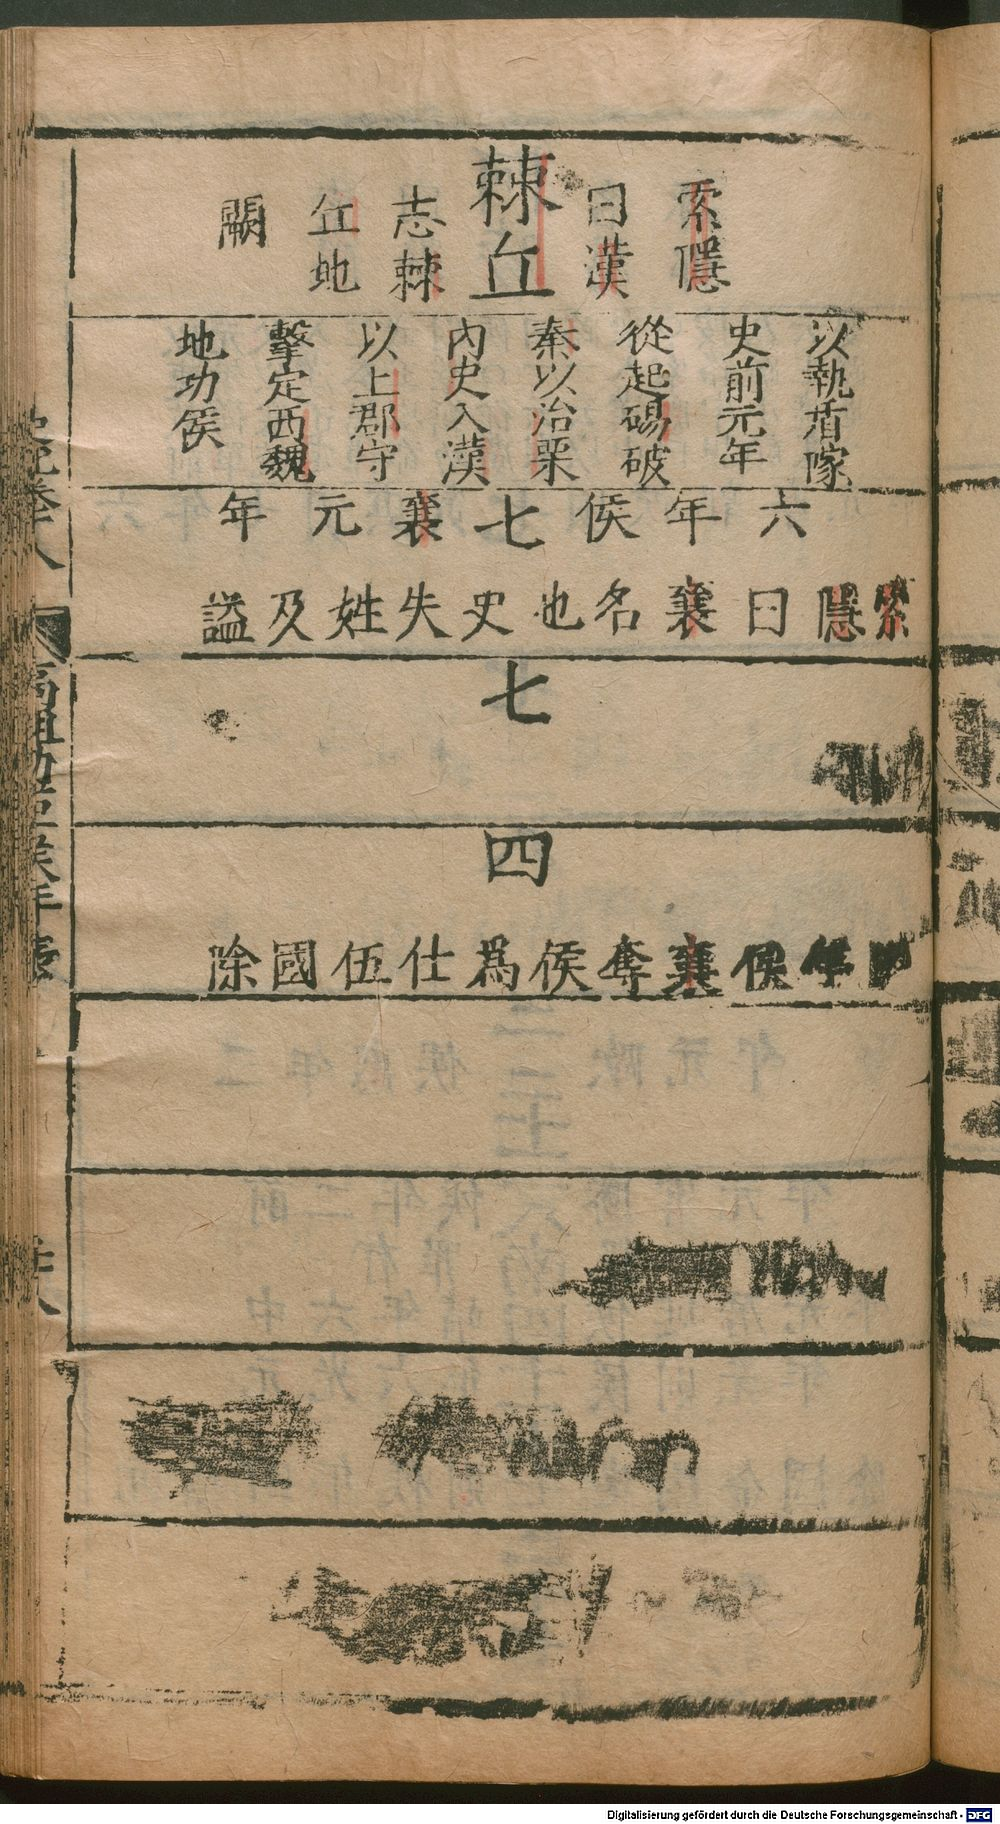 索隱
曰漢
棘丘
志棘
丘地
闕
以執盾隊
史前元年
從起碭破
秦以治粟
內史入漢
以上郡守
擊定西魏
地功侯
六年侯七襄元年
索隱曰襄名也史失姓及謚
七
四
年侯襄奪侯爲仕伍國除
高祖功臣侯年表
Digitalisierung gefördert durch die Deutsche Forschungsgemeinschaft - DFG